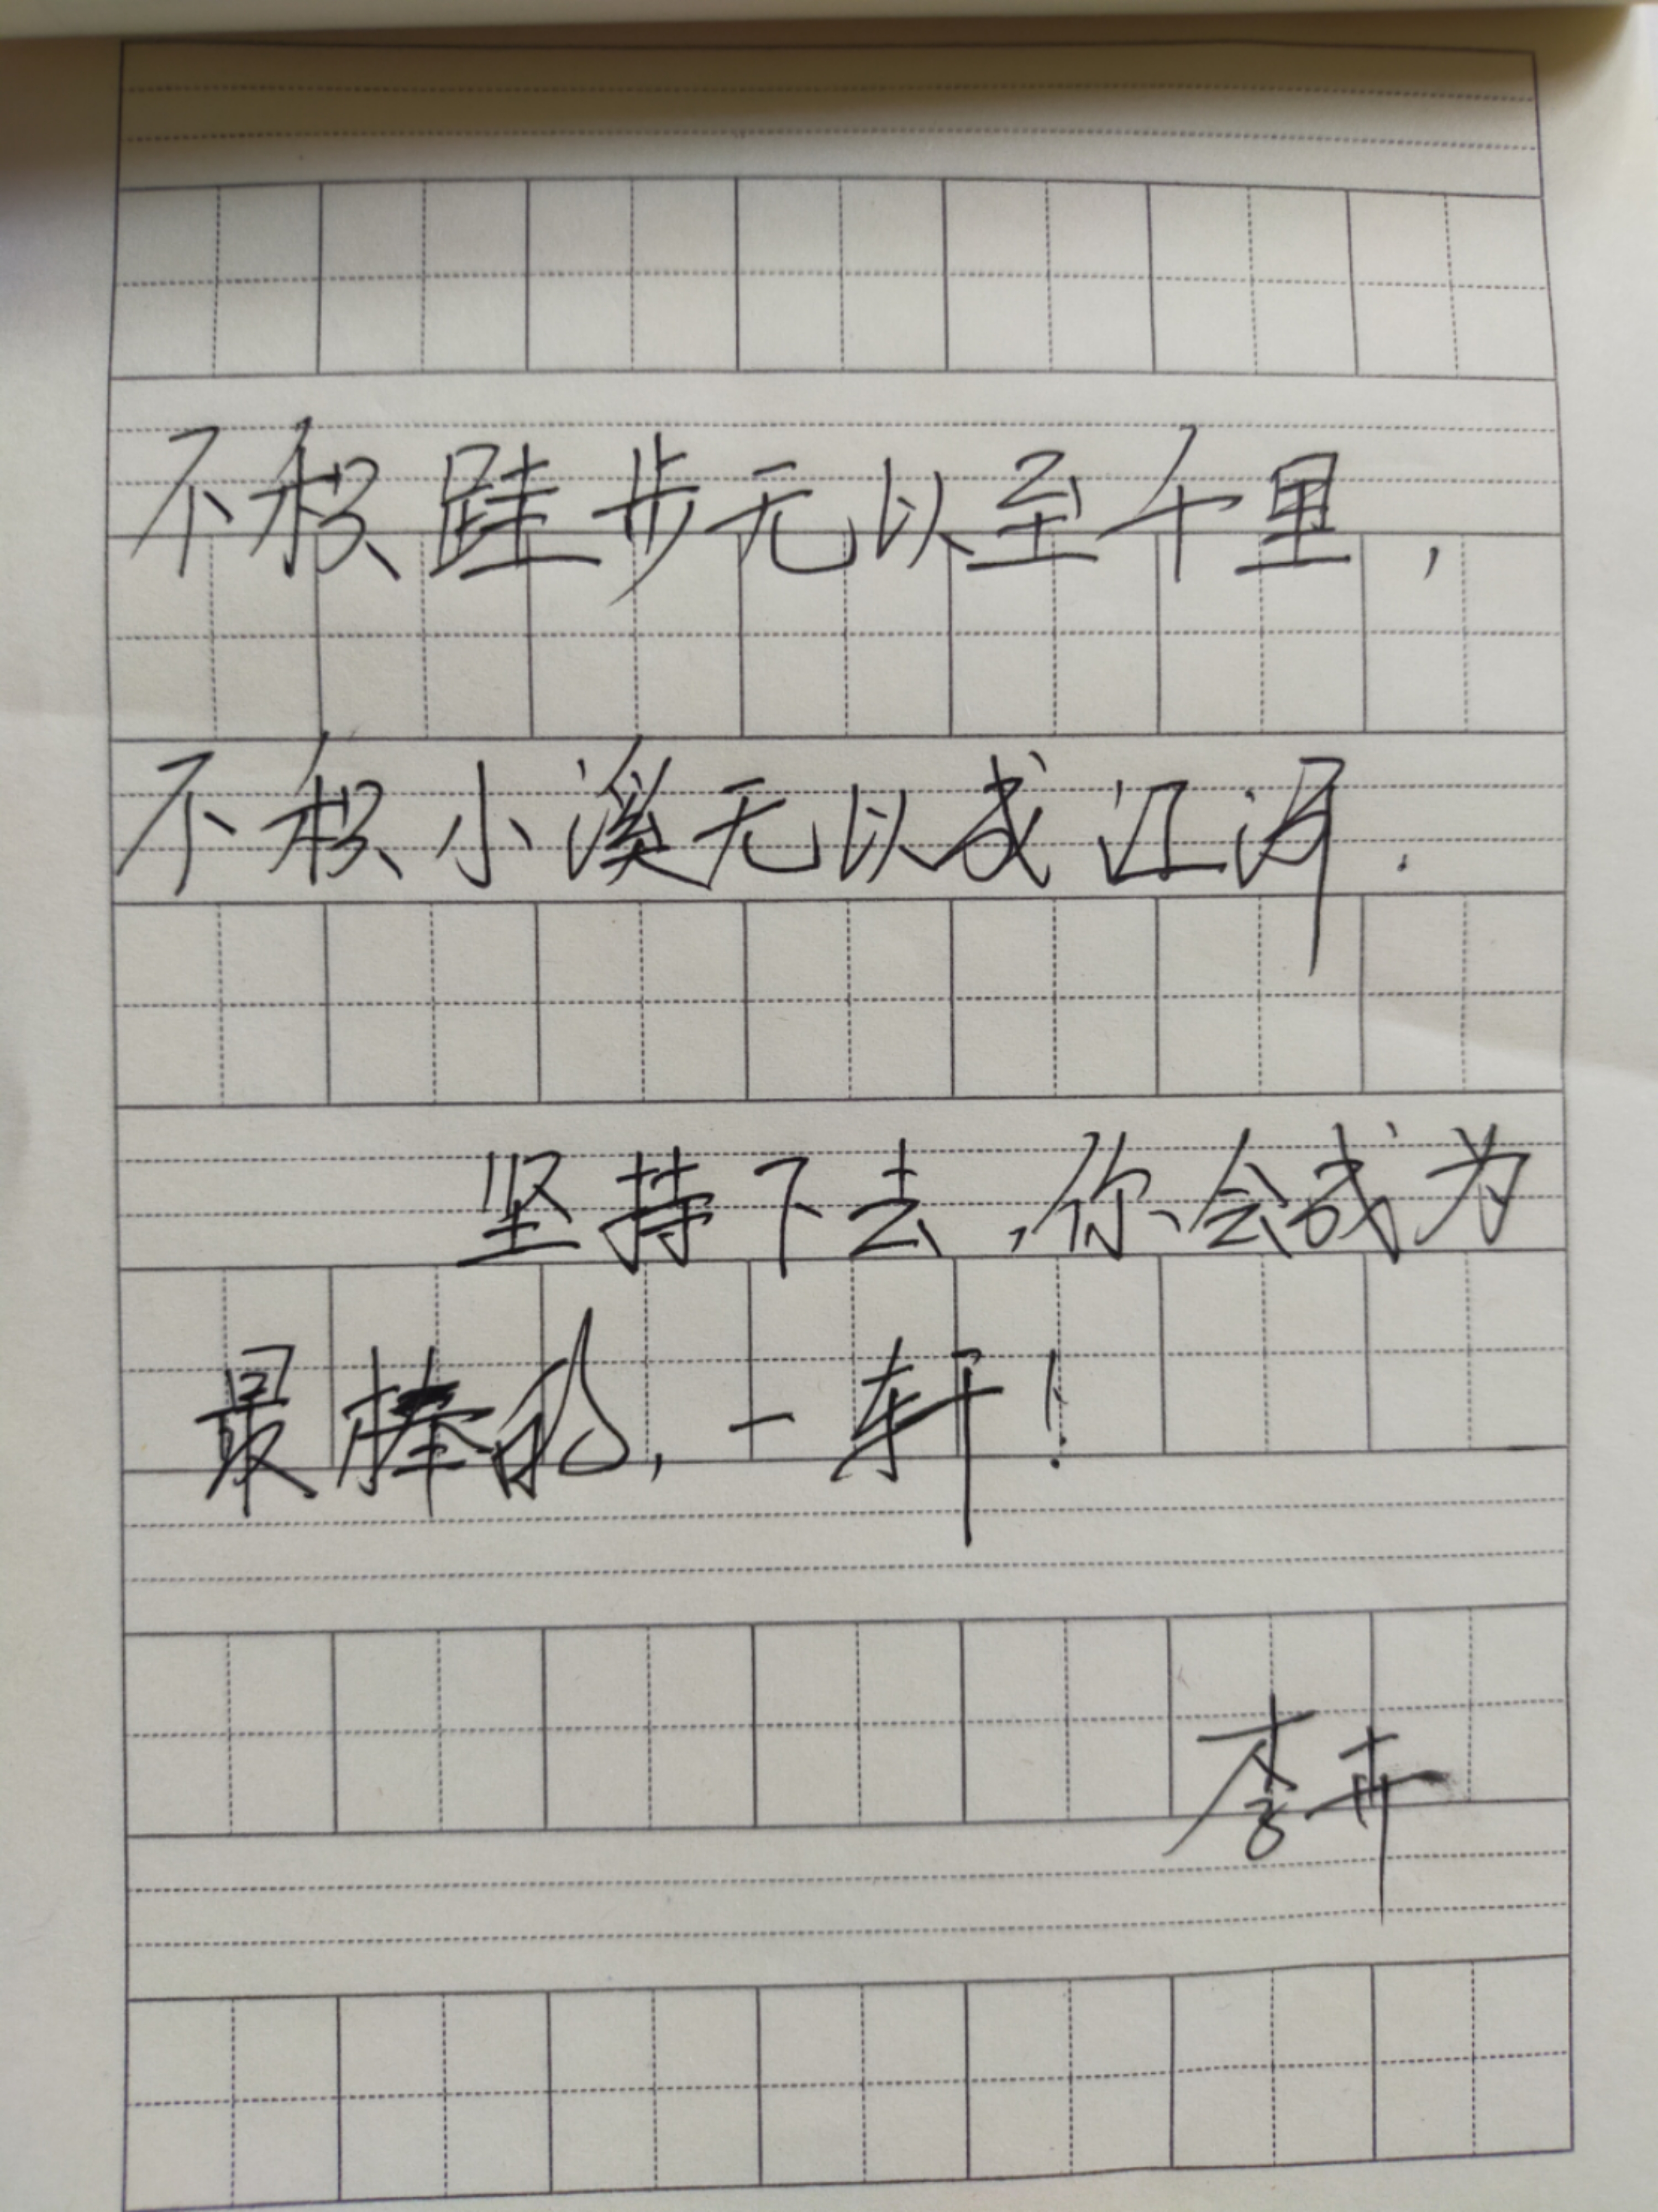 不积跬步无以至千里，
不积小溪无以成江河.
坚持下去，你会成为
最棒的，一轩！
李